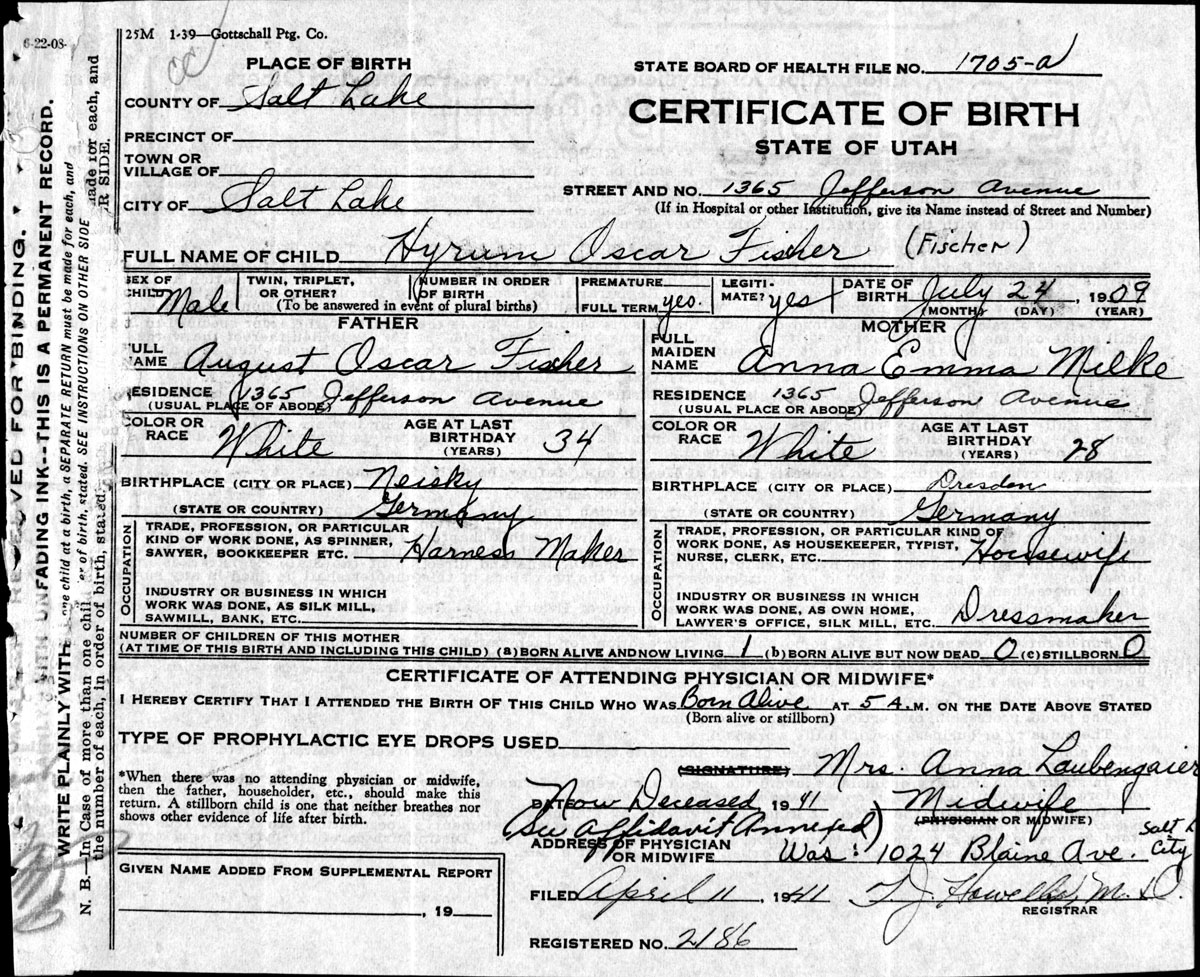 25M 1-39—Gottschall Ptg. Co.
6-22-08-
CC
PLACE OF BIRTH
STATE BOARD OF HEALTH FILE NO. 1705-a
COUNTY OF Salt Lake
CERTIFICATE OF BIRTH
PRECINCT OF
STATE OF UTAH
TOWN OR
VILLAGE OF
STREET AND NO. 1365 Jefferson Avenue
CITY OF Salt Lake
(If in Hospital or other Institution, give its Name instead of Street and Number)
FULL NAME OF CHILD Hyrum Oscar Fisher (Fischer)
SEX OF
CHILD Male
TWIN, TRIPLET,
OR OTHER?
NUMBER IN ORDER
OF BIRTH
(To be answered in event of plural births)
PREMATURE
FULL TERM yes.
LEGITI-
MATE? yes
DATE OF
BIRTH July 24, 1909
(MONTH) (DAY) (YEAR)
FATHER
FULL
NAME August Oscar Fischer
RESIDENCE 1365 Jefferson Avenue
(USUAL PLACE OF ABODE)
COLOR OR
RACE White
AGE AT LAST
BIRTHDAY 34
(YEARS)
BIRTHPLACE (CITY OR PLACE) Neisky
(STATE OR COUNTRY) Germany
OCCUPATION
TRADE, PROFESSION, OR PARTICULAR
KIND OF WORK DONE, AS SPINNER,
SAWYER, BOOKKEEPER ETC. Harness Maker
INDUSTRY OR BUSINESS IN WHICH
WORK WAS DONE, AS SILK MILL,
SAWMILL, BANK, ETC.
MOTHER
FULL
MAIDEN
NAME Anna Emma Milke
RESIDENCE 1365 Jefferson Avenue
(USUAL PLACE OR ABODE)
COLOR OR
RACE White
AGE AT LAST
BIRTHDAY 28
(YEARS)
BIRTHPLACE (CITY OR PLACE) Dresden
(STATE OR COUNTRY) Germany
OCCUPATION
TRADE, PROFESSION, OR PARTICULAR KIND OF
WORK DONE, AS HOUSEKEEPER, TYPIST,
NURSE, CLERK, ETC. Housewife
INDUSTRY OR BUSINESS IN WHICH
WORK WAS DONE, AS OWN HOME,
LAWYER'S OFFICE, SILK MILL, ETC. Dressmaker
NUMBER OF CHILDREN OF THIS MOTHER
(AT TIME OF THIS BIRTH AND INCLUDING THIS CHILD) (a) BORN ALIVE AND NOW LIVING 1 (b) BORN ALIVE BUT NOW DEAD 0 (c) STILLBORN 0
CERTIFICATE OF ATTENDING PHYSICIAN OR MIDWIFE*
I HEREBY CERTIFY THAT I ATTENDED THE BIRTH OF THIS CHILD WHO WAS Born Alive AT 5 A.M. ON THE DATE ABOVE STATED
(Born alive or stillborn)
TYPE OF PROPHYLACTIC EYE DROPS USED
*When there was no attending physician or midwife,
then the father, householder, etc., should make this
return. A stillborn child is one that neither breathes nor
shows other evidence of life after birth.
(SIGNATURE) Mrs. Anna Laubengaier
DATE Now Deceased 1941 Midwife
(See Affidavit Annexed) (PHYSICIAN OR MIDWIFE)
ADDRESS OF PHYSICIAN
OR MIDWIFE Was: 1024 Blaine Ave. Salt L. City
GIVEN NAME ADDED FROM SUPPLEMENTAL REPORT
, 19
FILED April 11 1941 T. J. Howells, M.D.
REGISTRAR
REGISTERED NO. 2186
WRITE PLAINLY WITH UNFADING INK--THIS IS A PERMANENT RECORD.
N. B.—In Case of more than one child at a birth, a SEPARATE RETURN must be made for each, and
the number of each, in order of birth, stated. SEE INSTRUCTIONS ON OTHER SIDE
made for each, and
R SIDE.